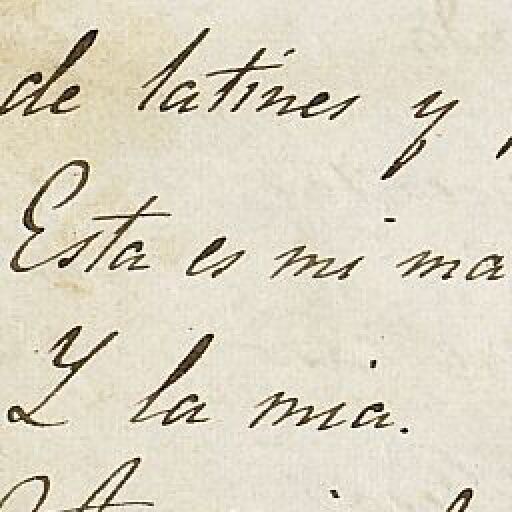 de latines y
Esta es mi ma
Y la mia.